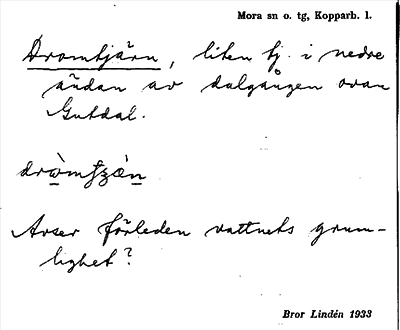 Mora sn o. tg, Kopparb. l.
Dromtjärn, liten tj. i nedre
ändan av dalgången ovan
Gutdal.
Avser förleden vattnets grum-
lighet?
Bror Lindén 1933